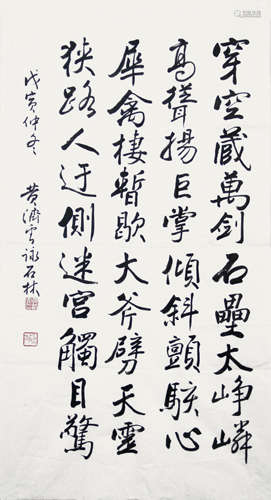 穿空藏萬剑石壘太峥嶙
高聳揚巨掌傾斜顫駭心
犀禽棲暫歇大斧劈天靈
狭路人迂側迷宫觸目驚
戊寅仲冬 黄濟雲詠石林